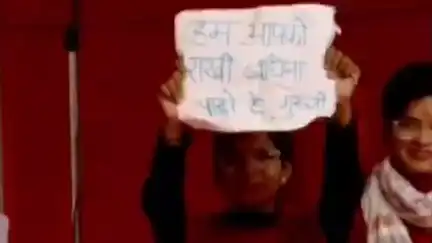 हम आपको
राखी बांधना
चाहते है गुरुजी